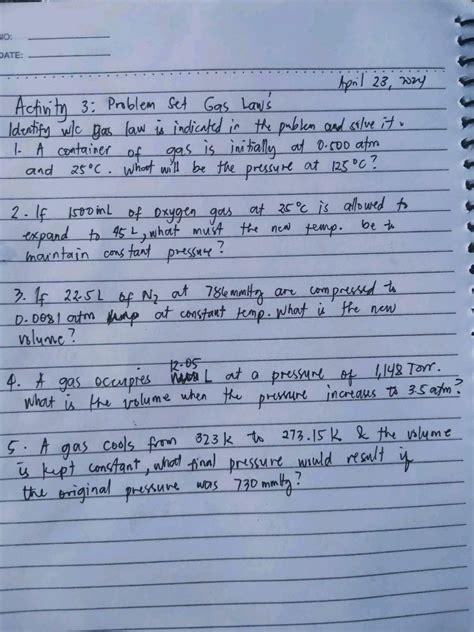 NO:
DATE:
April 23, 2024
Activity 3: Problem Set Gas Law's
Identify w/c gas law is indicated in the problem and solve it.
1. A container of gas is initially at 0.500 atm
and 25°C. What will be the pressure at 125°C?
2. If 1500mL of oxygen gas at 25°C is allowed to
expand to 45 L, what must the new temp. be to
maintain constant pressure?
3. If 22.5L of N2 at 786mmHg are compressed to
0.0081 atm at constant temp. What is the new
volume?
4. A gas occupies 12.05 L at a pressure of 1,148 Torr.
What is the volume when the pressure increases to 3.5 atm?
5. A gas cools from 323k to 273.15k & the volume
is kept constant, what final pressure would result if
the original pressure was 730 mmHg?